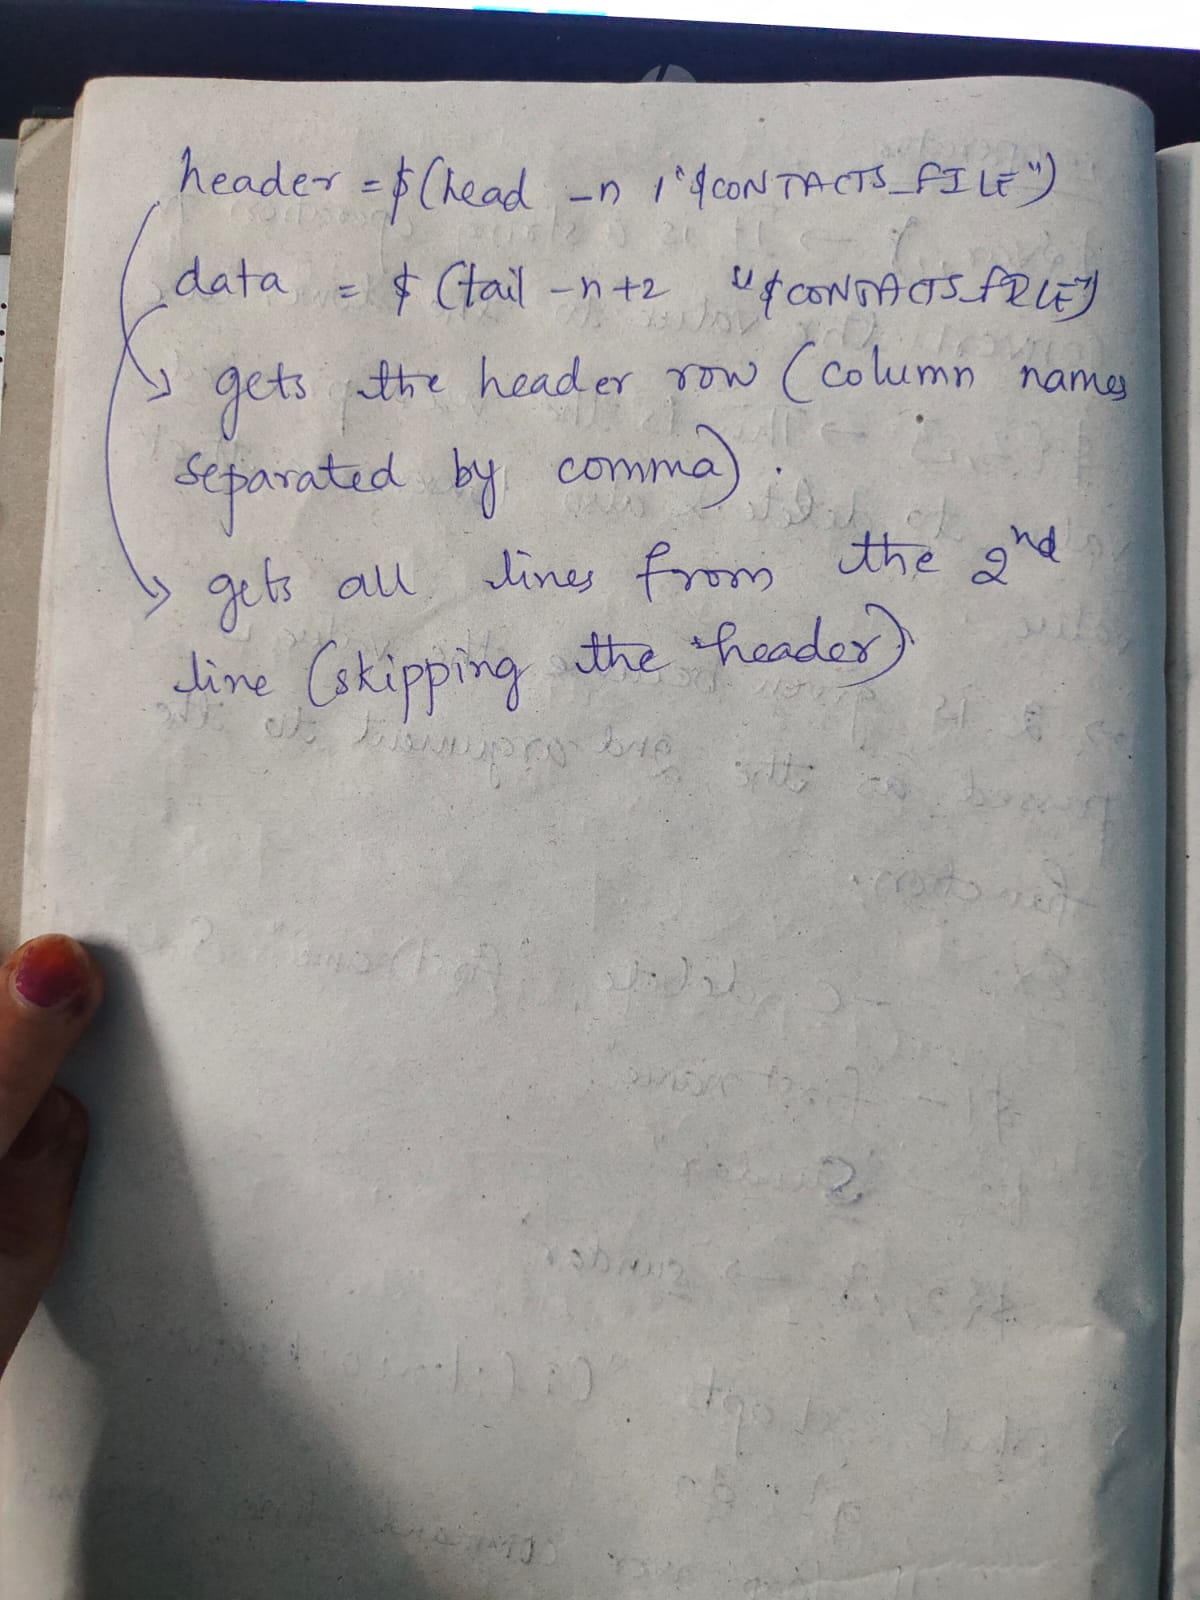 header = $(head -n 1 "$CONTACTS_FILE")
data = $(tail -n+2 "$CONTACTS_FILE")
gets the header row (column names
separated by comma).
gets all lines from the 2nd
line (skipping the header)